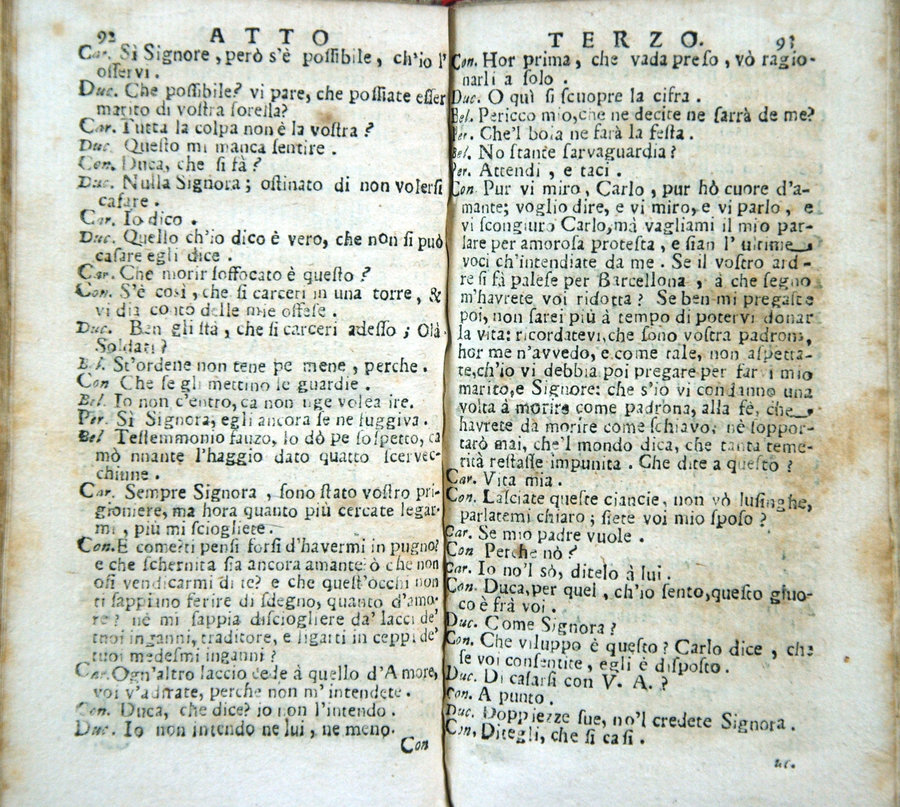 92 ATTO
Car. Sì Signore, però s'è possibile, ch'io l'
osservi.
Duc. Che possibile? vi pare, che possiate esser
marito di vostra sorella?
Car. Tutta la colpa non è la vostra?
Duc. Questo mi manca sentire.
Con. Duca, che si fà?
Duc. Nulla Signora; ostinato di non volersi
casare.
Car. Io dico.
Duc. Quello ch'io dico è vero, che non si può
casare egli dice.
Car. Che morir soffocato è questo?
Con. S'è così, che si carceri in una torre, &
vi dia conto delle mie offese.
Duc. Ben gli stà, che si carceri adesso; Olà
Soldati?
Bel. St'ordene non tene pe mene, perche.
Con Che se gli mettino le guardie.
Bel. Io non c'entro, ca non nge volea ire.
Per. Sì Signora, egli ancora se ne fuggiva.
Bel Testemmonio fauzo, lo dò pe sospetto, ca
mò nnante l'haggio dato quatto scervec-
chinne.
Car. Sempre Signora, sono stato vostro pri-
gioniere, ma hora quanto più cercate legar-
mi, più mi sciogliete.
Con. E come? ti pensi forsi d'havermi in pugno?
e che schernita sia ancora amante: ò che non
osi vendicarmi di te? e che quest'occhi non
ti sappiano ferire di sdegno, quanto d'amo-
re? nè mi sappia disciogliere da' lacci de'
tuoi inganni, traditore, e ligarti in ceppi de'
tuoi medesmi inganni?
Car. Ogn'altro laccio cede à quello d'Amore,
voi v'aditate, perche non m'intendete.
Con. Duca, che dice? io non l'intendo.
Duc. Io non intendo ne lui, ne meno.
Con
TERZO. 93
Con. Hor prima, che vada preso, vò ragio-
narli a solo.
Duc. O quì si scuopre la cifra.
Bel. Pericco mio, che ne decite ne sarrà de me?
Per. Che'l boia ne farà la festa.
Bel. No stante sarvaguardia?
Per. Attendi, e taci.
Con Pur vi miro, Carlo, pur hò cuore d'a-
mante; voglio dire, e vi miro, e vi parlo, e
vi scongiuro Carlo, mà vagliami il mio par-
lare per amorosa protesta, e sian l'ultime
voci ch'intendiate da me. Se il vostro ardi-
re si fà palese per Barcellona, à che segno
m'havrete voi ridotta? Se ben mi pregaste
poi, non sarei più à tempo di potervi donar
la vita: ricordatevi, che sono vostra padrona,
hor me n'avvedo, e come tale, non aspetta-
te, ch'io vi debbia poi pregare per farvi mio
marito, e Signore: che s'io vi condanno una
volta à morire come padrona, alla fè, che
havrete da morire come schiavo: nè soppor-
tarò mai, che'l mondo dica, che tanta teme-
rità restasse impunita. Che dite a questo?
Car. Vita mia.
Con. Lasciate queste ciancie, non vò lusinghe,
parlatemi chiaro; siete voi mio sposo?
Car. Se mio padre vuole.
Con Perche nò?
Car. Io no'l sò, ditelo à lui.
Con. Duca, per quel, ch'io sento, questo giuo-
co è frà voi.
Duc. Come Signora?
Con. Che viluppo è questo? Carlo dice, che
se voi consentite, egli è disposto.
Duc. Di casarsi con V. A.?
Con. A punto.
Duc. Doppiezze sue, no'l credete Signora.
Con. Ditegli, che si casi.